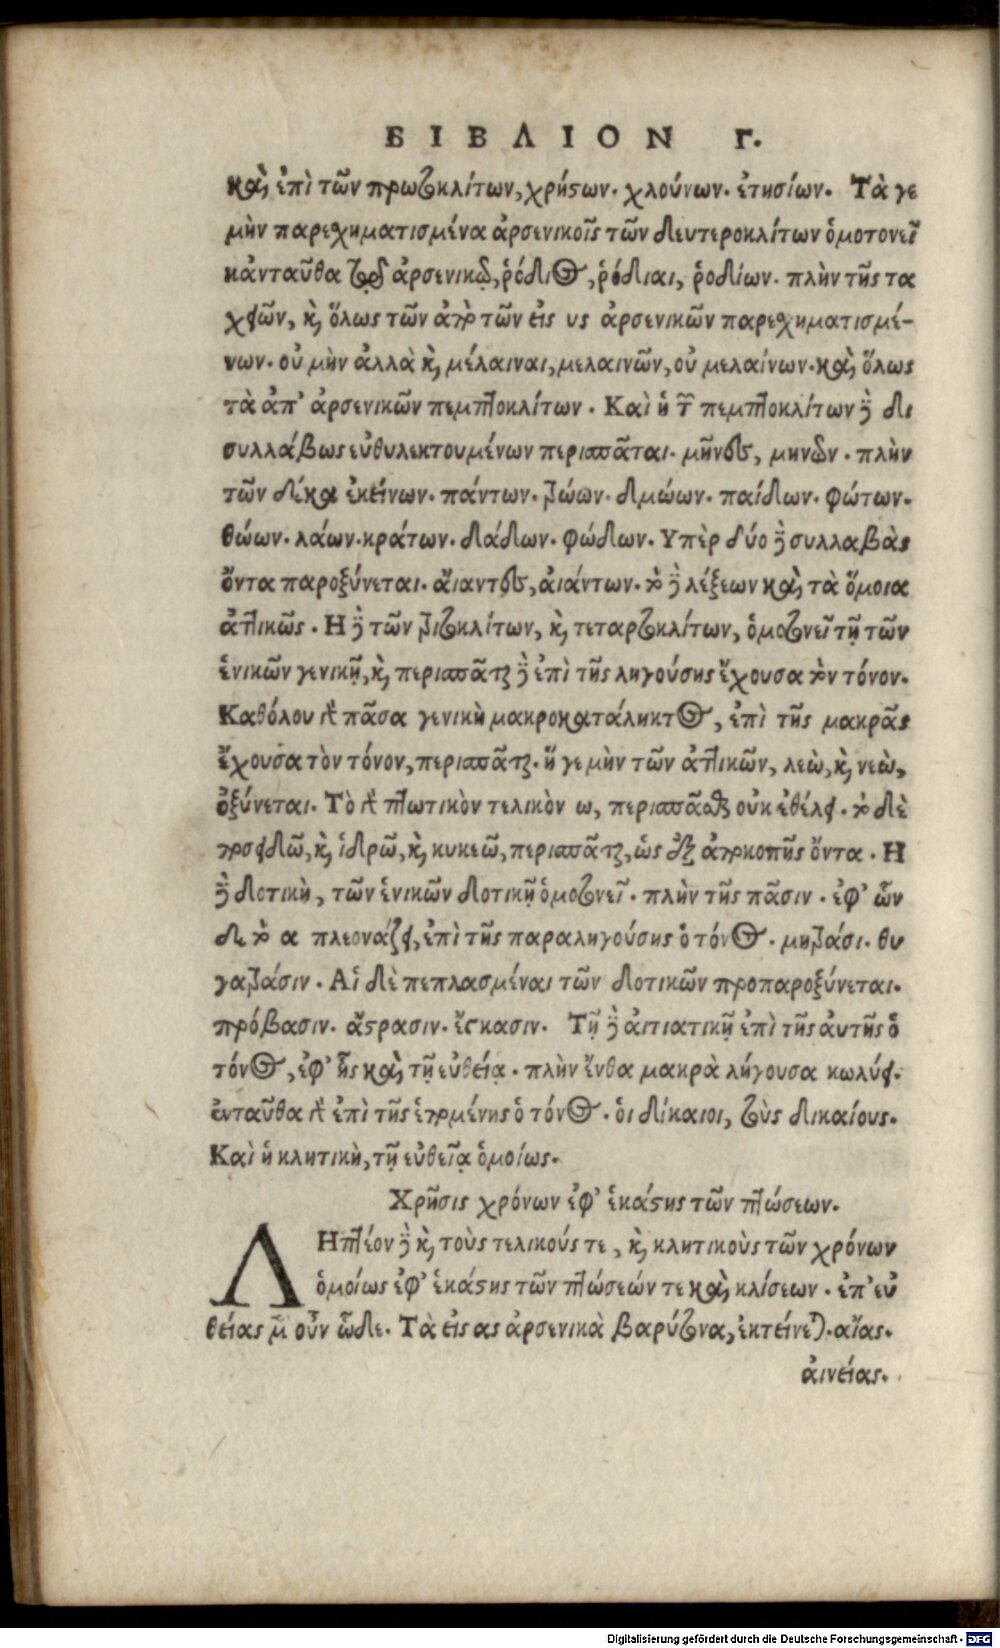 ΒΙΒΛΙΟΝ Γ.
καὶ ἐπὶ τῶν πρωτοκλίτων, χρήστων. χλούνων. ἐτησίων. Τὰ γε
μὴν παρεχηματισμένα ἀρσενικοῖς τῶν δευτεροκλίτων ὁμοτονεῖ
κἀνταῦθα τῷ ἀρσενικῷ, ῥόδιος, ῥόδιαι, ῥοδίων. πλὴν τῆς τα
χειῶν, καὶ ὅλως τῶν ἀπὸ τῶν εἰς υς ἀρσενικῶν παρεχηματισμέ-
νων. οὐ μὴν ἀλλὰ καὶ μέλαιναι, μελαινῶν, οὐ μελαίνων. καὶ ὅλως
τὰ ἀπ' ἀρσενικῶν πεμπτοκλίτων. Καὶ ἡ τῶν πεμπτοκλίτων δὲ δι
συλλάβως εὐθυλεκτουμένων περισπᾶται. μῆνες, μηνῶν. πλὴν
τῶν δέκα ἐκείνων. πάντων. τρώων. δμώων. παίδων. φώτων.
θώων. λάων. κράτων. δάδων. φώδων. Υπὲρ δύο δὲ συλλαβὰς
ὄντα παροξύνεται. αἴαντες, αἰάντων. τὸ δὲ λέξεων καὶ τὰ ὅμοια
ἀττικῶς. Η δὲ τῶν τριτοκλίτων, καὶ τεταρτοκλίτων, ὁμοτονεῖ τῇ τῶν
ἑνικῶν γενικῇ, καὶ περισπᾶται δὲ ἐπὶ τῆς ληγούσης ἔχουσα τὸν τόνον.
Καθόλου γὰρ πᾶσα γενικὴ μακροκατάληκτος, ἐπὶ τῆς μακρᾶς
ἔχουσα τὸν τόνον, περισπᾶται. ἥ γε μὴν τῶν ἀττικῶν, λεὼ, καὶ νεὼ,
ὀξύνεται. Τὸ γὰρ πτωτικὸν τελικὸν ω, περισπᾶσθαι οὐκ ἐθέλει. τὸ δὲ
ποσειδῶ, καὶ ἱδρῶ, καὶ κυκεῶ, περισπᾶται, ὡς ἐξ ἀποκοπῆς ὄντα. Η
δὲ δοτικὴ, τῶν ἑνικῶν δοτικῇ ὁμοτονεῖ. πλὴν τῆς πᾶσιν. ἐφ' ὧν
δε τὸ α πλεονάζει, ἐπὶ τῆς παραληγούσης ὁ τόνος. μητράσι. θυ
γατράσιν. Αἱ δὲ πεπλασμέναι τῶν δοτικῶν προπαροξύνεται.
πρόβασιν. ἄστρασιν. ἔσκασιν. Τῇ δὲ αἰτιατικῇ ἐπὶ τῆς αὐτῆς ὁ
τόνος, ἐφ' ἧς καὶ τῇ εὐθείᾳ. πλὴν ἔνθα μακρὰ λήγουσα κωλύει.
ἐνταῦθα γὰρ ἐπὶ τῆς ἑπομένης ὁ τόνος. οἱ δίκαιοι, τοὺς δικαίους.
Καὶ ἡ κλητικὴ, τῇ εὐθεῖᾳ ὁμοίως.
Χρῆσις χρόνων ἐφ' ἑκάστης τῶν πτώσεων.
ΛΗπτέον δὲ καὶ τοὺς τελικούς τε, καὶ κλητικοὺς τῶν χρόνων
ὁμοίως ἐφ' ἑκάστης τῶν πτώσεών τε καὶ κλίσεων. ἐπ' εὐ
θείας μὲν οὖν ὧδε. Τὰ εἰς ας ἀρσενικὰ βαρύτονα, ἐκτείνεται. αἴας.
αἰνείας.
Digitalisierung gefördert durch die Deutsche Forschungsgemeinschaft - DFG